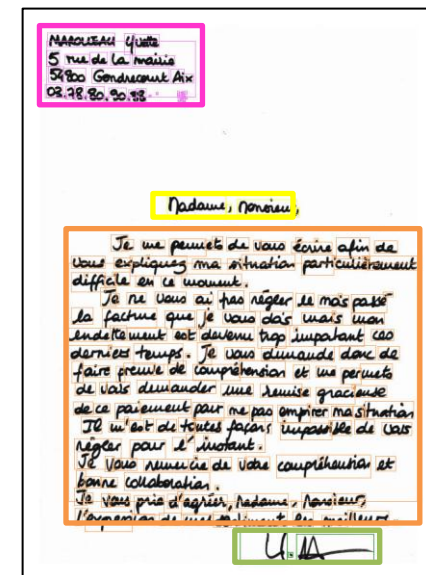 MAROLLEAU Yvette
5 rue de la mairie
54800 Gondrecourt Aix
03.78.80.90.33
Madame, Monsieur,
Je me permets de vous écrire afin de
vous expliquez ma situation particulièrement
difficile en ce moment.
Je ne vous ai pas régler le mois passé
la facture que je vous dois mais mon
endettement est devenu trop important ces
derniers temps. Je vous demande donc de
faire preuve de compréhension et me permets
de vous demander une remise gracieuse
de ce paiement pour ne pas empirer ma situation
Il m'est de toutes façons impossible de vous
régler pour l'instant.
Je vous remercie de votre compréhension et
bonne collaboration.
Je vous prie d'agréer, Madame, Monsieur,
l'expression de mes sentiments les meilleurs.